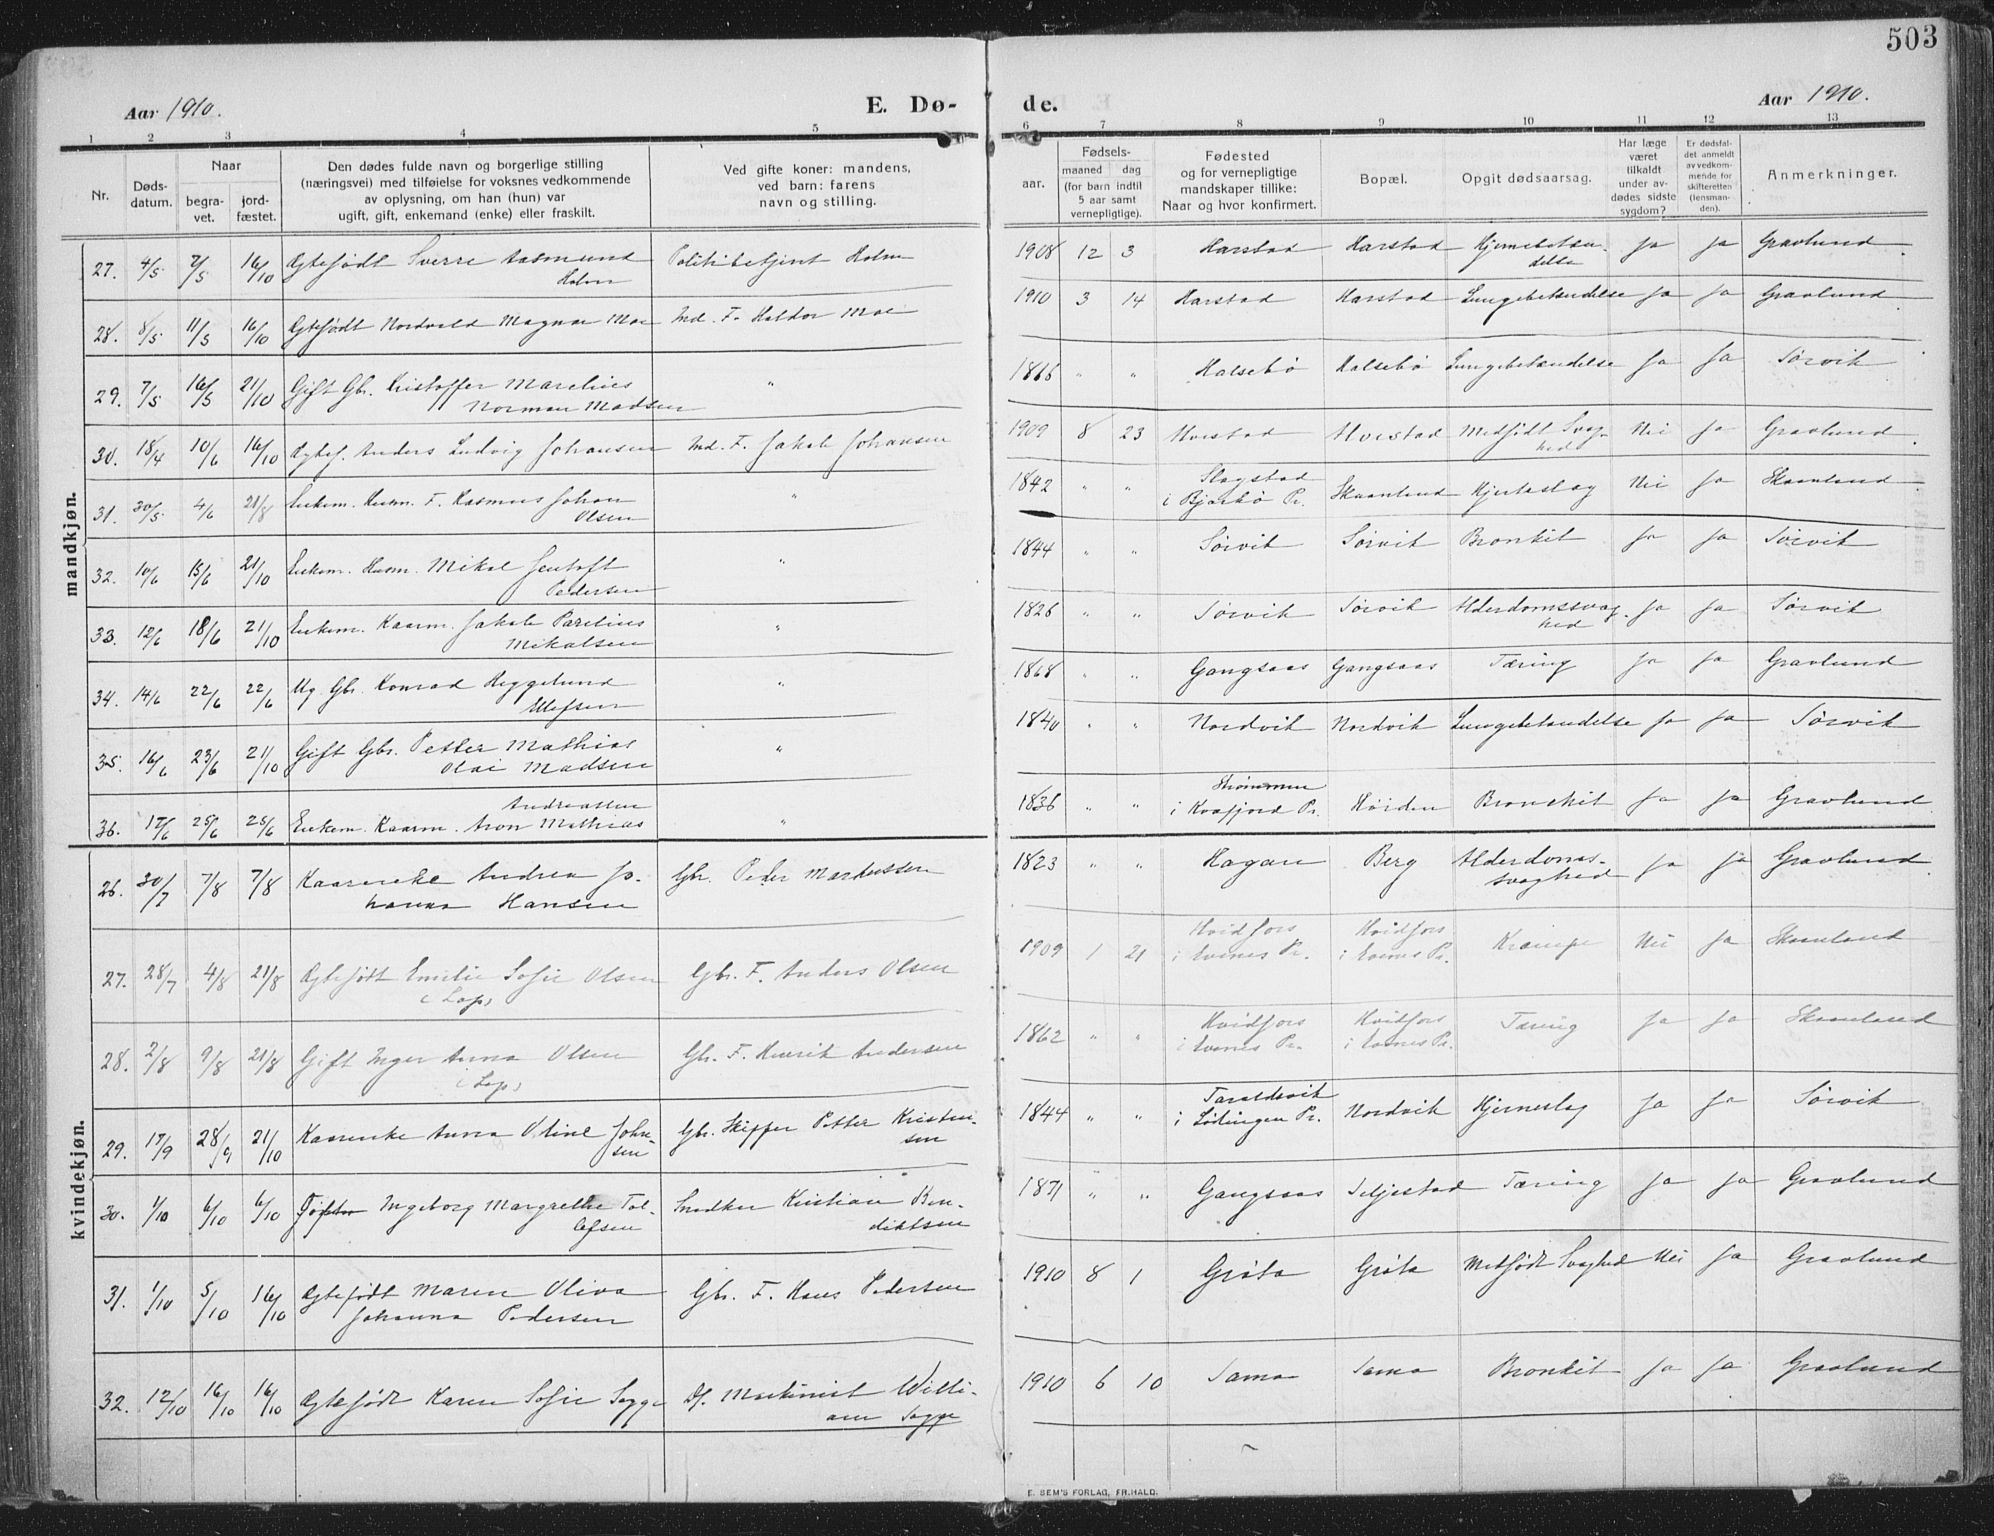 503
Aar 1910.
E. Dø-
de.
Aar 1910.
1 2 3 4 5 6 7 8 9 10 11 12 13
Nr.
Døds-
datum.
Naar
begra-
vet.
jord-
fæstet.
Den dødes fulde navn og borgerlige stilling
(næringsvei) med tilføielse for voksnes vedkommende
av oplysning, om han (hun) var
ugift, gift, enkemand (enke) eller fraskilt.
Ved gifte koner: mandens,
ved barn: farens
navn og stilling.
Fødsels-
aar.
maaned dag
(for barn indtil
5 aar samt
vernepligtige).
Fødested
og for vernepligtige
mandskaper tillike:
Naar og hvor konfirmert.
Bopæl.
Opgit dødsaarsag.
Har læge
været
tilkaldt
under av-
dødes sidste
sygdom?
Er dødsfal-
det anmeldt
av vedkom-
mende for
skifteretten
(lensman-
den).
Anmerkninger.
mandkjøn.
27. 4/5 7/5 16/10 Ægtefødt Sverre Aasmund Politibetjent Holm 1908 12 3 Harstad Harstad Hjernebetæn- Ja Ja Gravlund
Holm delse
28. 8/5 11/5 16/10 Ægtefødt Nordvald Magnar Moe Ind. F. Haldor Moe 1910 3 14 Harstad Harstad Lungebetændelse Ja Ja Gravlund
29. 7/5 16/5 21/10 Gift Gbr. Kristoffer Marelius " 1866 " " Halsebø Halsebø Lungebetændelse Ja Ja Sørvik
Norman Madsen
30. 18/4 10/6 16/10 Ægtef. Anders Ludvig Johansen Ind. F. Jakob Johansen 1909 8 23 Horstad Horstad Medfødt Svag- Nei Ja Gravlund
hed
31. 30/5 4/6 21/8 Enkem. Husm. F. Rasmus Johan " 1842 " " Slagstad Skaanland Hjerteslag Nei Ja Skaanland
Olsen i Bjarkø Pr.
32. 10/6 15/6 21/10 Enkem. Husm. Mikal Jentoft " 1844 " " Sørvik Sørvik Bronkit Ja Ja Sørvik
Pedersen
33. 12/6 18/6 21/10 Enkem. Kaarm. Jakob Parelius " 1826 " " Sørvik Sørvik Alderdomssvag- Ja Ja Sørvik
Mikalsen hed
34. 14/6 22/6 22/6 Ug. Gbr. Konrad Heggelund " 1868 " " Gangsaas Gangsaas Tæring Ja Ja Gravlund
Ellefsen
35. 16/6 23/6 21/10 Gift Gbr. Petter Mathias " 1840 " " Nordvik Nordvik Lungebetændelse Ja Ja Sørvik
Olai Madsen
Andreassen Strømmen
36. 17/6 25/6 25/6 Enkem. Kaarm. Aron Mathias " 1836 " " i Kvæfjord Pr. Bronchit Ja Ja Gravlund
kvindekjøn.
26. 30/7 7/8 7/8 Kaarenke Andrea Jo- Gbr. Peder Markussen 1823 " " Hagan Berg Alderdoms- Ja Ja Gravlund
hanna Hansen svaghed
27. 28/7 4/8 21/8 Ægtefødt Emilie Sofie Olsen Gbr. F. Anders Olsen 1909 1 21 Hvidfors Hvidfors Krampe Nei Ja Skaanland
(Lap) i Evenes Pr. i Evenes Pr.
28. 2/8 9/8 21/8 Gift Inger Anna Olsen Gbr. F. Henrik Andersen 1862 " " Hvidfors Hvidfors Tæring Ja Ja Skaanland
(Lap) i Evenes Pr. i Evenes Pr.
29. 17/9 28/9 21/10 Kaarenke Anna Oline John- Gbr. Skipper Petter Kristen- 1844 " " Taraldsvik Nordvik Hjerneslag Ja Ja Sørvik
sen sen i Lødingen Pr.
30. 1/10 6/10 6/10 Ingeborg Margrethe Tol- Snedker Kristian Ben- 1871 " " Gangsaas Seljestad Tæring Ja Ja Gravlund
lefsen diktsen
31. 1/10 5/10 16/10 Ægtefødt Maren Oliva Gbr. F. Hans Pedersen 1910 8 1 Grøta Grøta Medfødt Svaghed Nei Ja Gravlund
Johanna Pedersen
32. 12/10 16/10 16/10 Ægtefødt Karen Sofie Sagge Df. Maskinist Willi- 1910 6 10 Sama Sama Bronkit Ja Ja Gravlund
am Sagge
E. SEM'S FORLAG, FR.HALD.